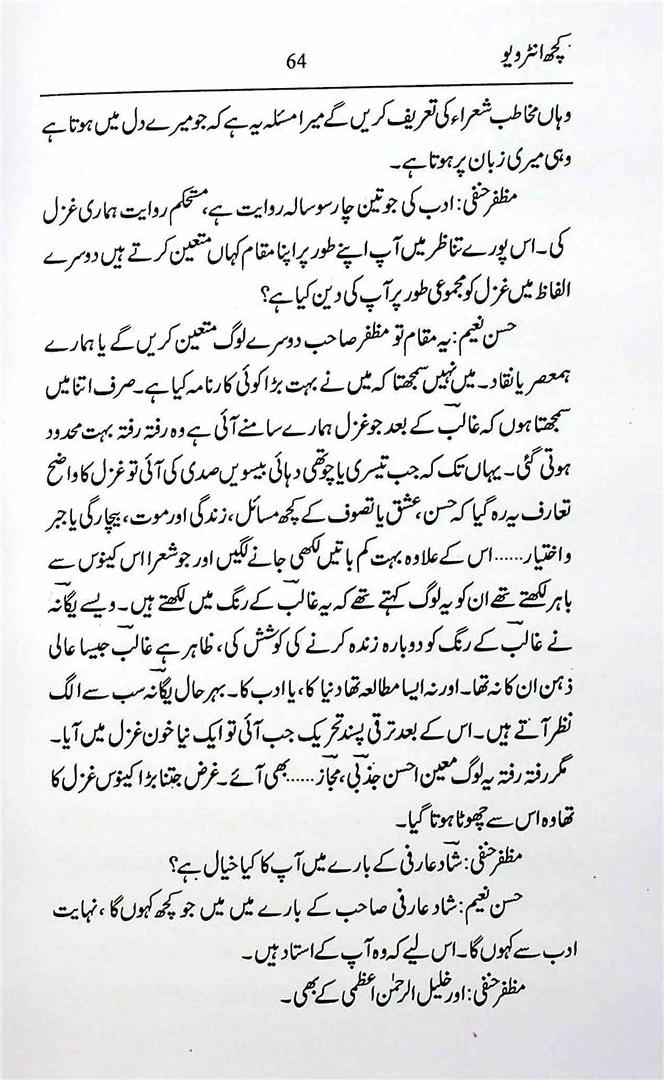 کچھ انٹرویو
64
وہاں مخاطب شعراء کی تعریف کریں گے میرا مسئلہ یہ ہے کہ جو میرے دل میں ہوتا ہے
وہی میری زبان پر ہوتا ہے۔
مظفر حنفی: ادب کی جو تین چار سو سالہ روایت ہے، مستحکم روایت ہماری غزل
کی۔ اس پورے تناظر میں آپ اپنے طور پر اپنا مقام کہاں متعین کرتے ہیں دوسرے
الفاظ میں غزل کو مجموعی طور پر آپ کی دین کیا ہے؟
حسن نعیم: یہ مقام تو مظفر صاحب دوسرے لوگ متعین کریں گے یا ہمارے
ہمعصر یا نقاد۔ میں نہیں سمجھتا کہ میں نے بہت بڑا کوئی کارنامہ کیا ہے۔ صرف اتنا میں
سمجھتا ہوں کہ غالبؔ کے بعد جو غزل ہمارے سامنے آئی ہے وہ رفتہ رفتہ بہت محدود
ہوتی گئی۔ یہاں تک کہ جب تیسری یا چوتھی دہائی بیسویں صدی کی آئی تو غزل کا واضح
تعارف یہ رہ گیا کہ حسن، عشق یا تصوف کے کچھ مسائل، زندگی اور موت، بیچارگی یا جبر
و اختیار...... اس کے علاوہ بہت کم باتیں لکھی جانے لگیں اور جو شعرا اس کینوس سے
باہر لکھتے تھے ان کو یہ لوگ کہتے تھے کہ یہ غالبؔ کے رنگ میں لکھتے ہیں۔ ویسے یگانہؔ
نے غالبؔ کے رنگ کو دوبارہ زندہ کرنے کی کوشش کی، ظاہر ہے غالبؔ جیسا عالی
ذہن ان کا نہ تھا۔ اور نہ ایسا مطالعہ تھا دنیا کا، یا ادب کا۔ بہر حال یگانہؔ سب سے الگ
نظر آتے ہیں۔ اس کے بعد ترقی پسند تحریک جب آئی تو ایک نیا خون غزل میں آیا۔
مگر رفتہ رفتہ یہ لوگ معین احسن جذبیؔ، مجازؔ...... بھی آئے۔ غرض جتنا بڑا کینوس غزل کا
تھا وہ اس سے چھوٹا ہوتا گیا۔
مظفر حنفی: شادؔ عارفی کے بارے میں آپ کا کیا خیال ہے؟
حسن نعیم: شاد عارفی صاحب کے بارے میں میں جو کچھ کہوں گا، نہایت
ادب سے کہوں گا۔ اس لیے کہ وہ آپ کے استاد ہیں۔
مظفر حنفی: اور خلیل الرحمٰن اعظمی کے بھی۔